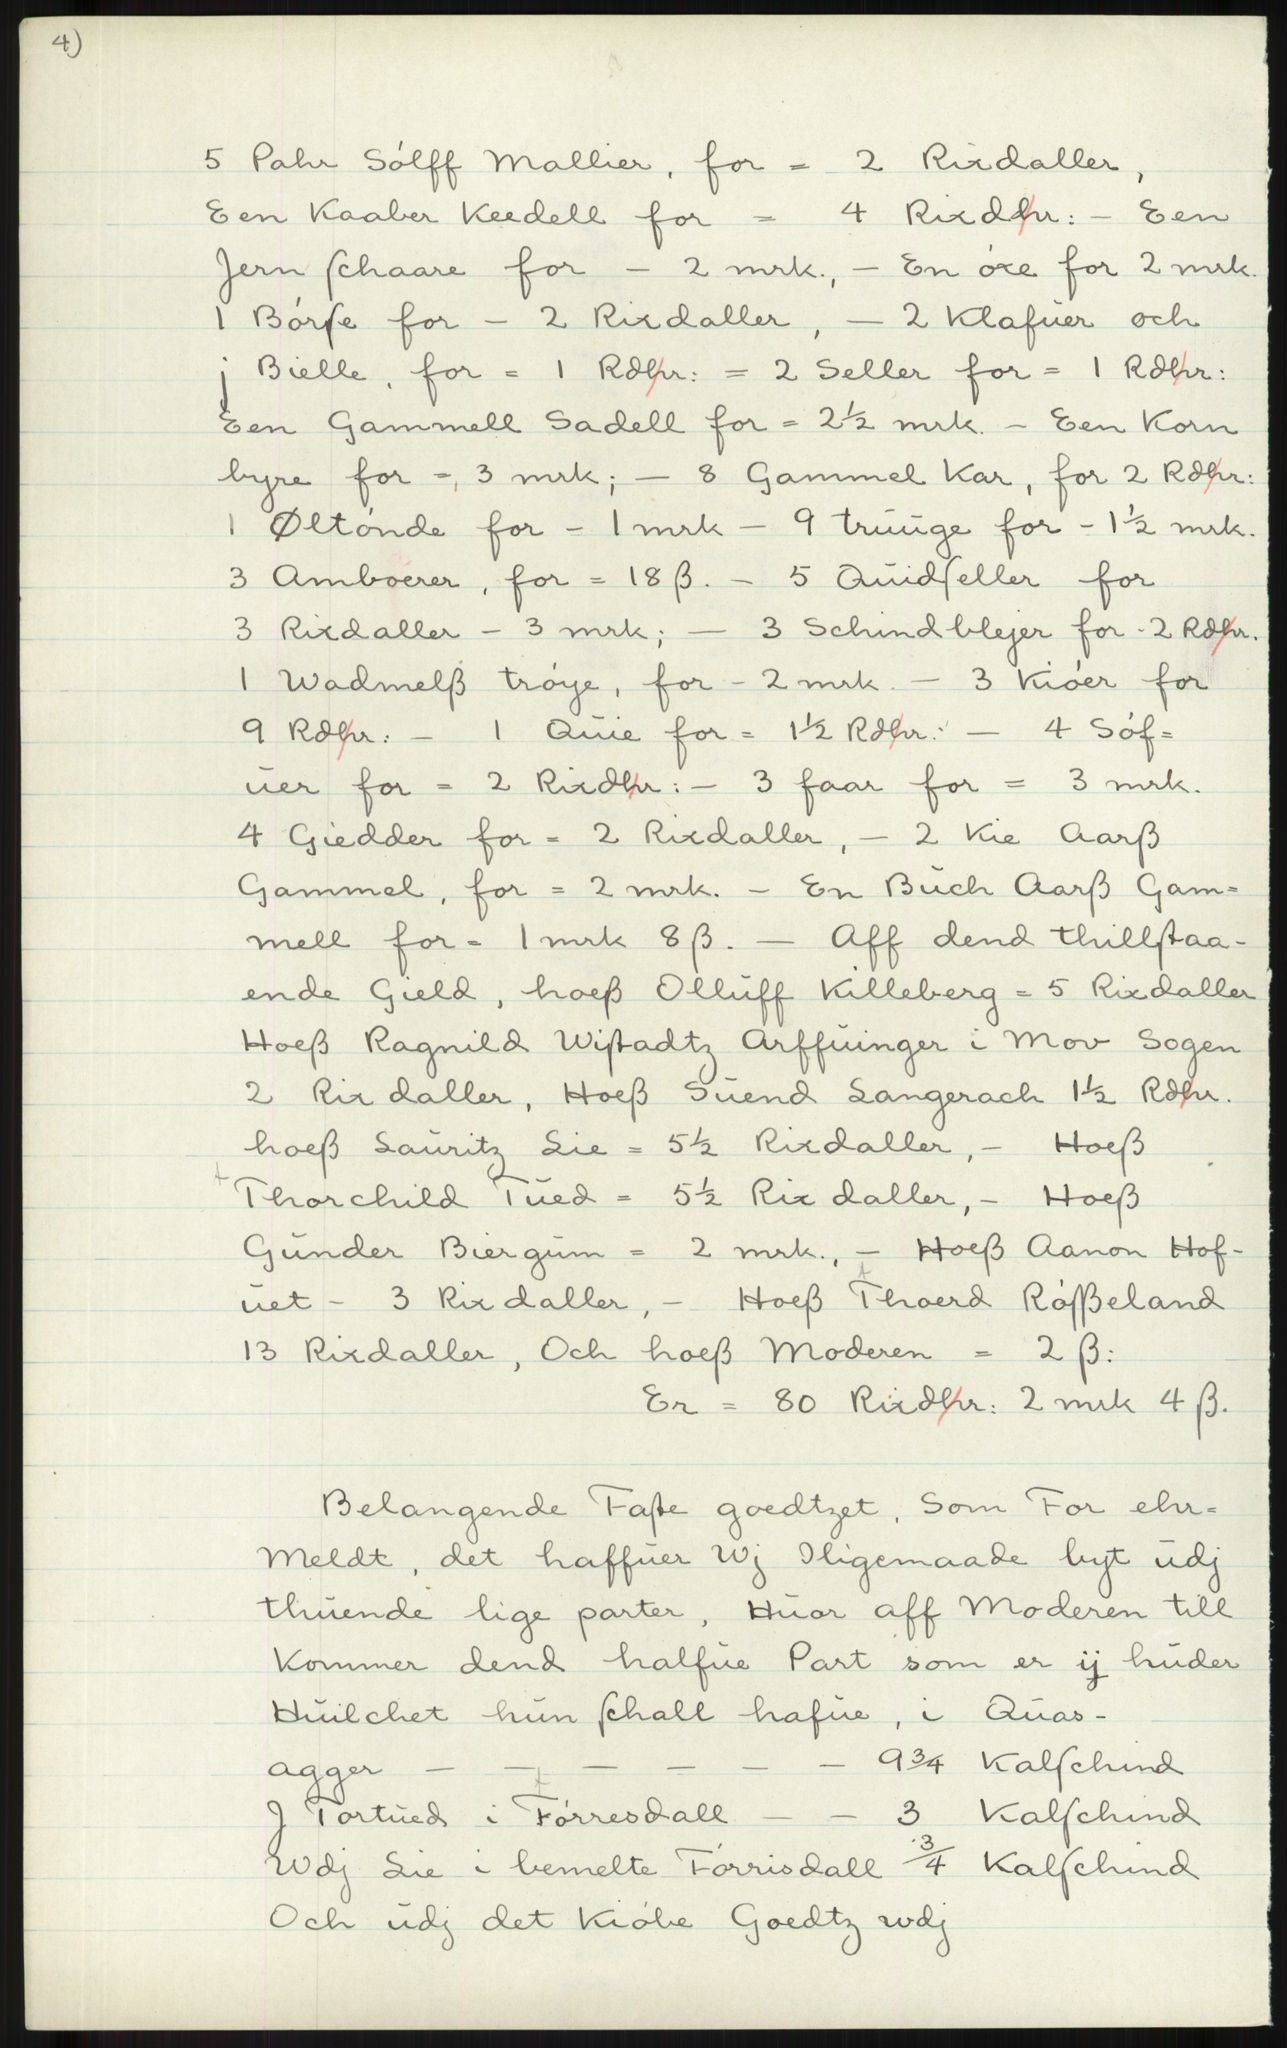 4)
5 Pahr Sólff Mallier, for = 2 Rixdaller,
Een Kaaber Keedell for = 4 Rixdlr: - Een
Jern ſchaare for - 2 mrk., - En óxe for 2 mrk.
1 Bórſe for - 2 Rixdaller, - 2 Klafuer och
j Bielle, for = 1 Rdlr: = 2 Seller for = 1 Rdlr:
Een Gammell Sadell for = 2½ mrk. - Een Korn
byre for =, 3 mrk; - 8 Gammel Kar, for 2 Rdlr:
1 Øltónde for - 1 mrk - 9 truuge for - 1½ mrk.
3 Amboerer, for = 18 ß. - 5 Quidſeller for
3 Rixdaller - 3 mrk; - 3 Schindblejer for - 2 Rdlr.
1 Wadmelß tróye, for - 2 mrk. - 3 Kióer for
9 Rdlr: - 1 Quie for = 1½ Rdlr: - 4 Sóf=
uer for = 2 Rixdlr: - 3 faar for = 3 mrk.
4 Giedder for = 2 Rixdaller, - 2 Kie Aarß
Gammel, for = 2 mrk. - En Buch Aarß Gam=
mell for = 1 mrk 8 ß. - Aff dend thillſtaa-
ende Gield, hoeß Olluff Killeberg = 5 Rixdaller
Hoeß Ragnild Wiſtadtz Arffuinger i Mov Sogen
2 Rixdaller, Hoeß Suend Langerach 1½ Rdlr.
hoeß Lauritz Lie = 5½ Rixdaller, - Hoeß
Thorchild Tued = 5½ Rixdaller, - Hoeß
Gunder Biergum = 2 mrk., - Hoeß Aanon Hof-
uet - 3 Rixdaller, - Hoeß Thoerd Róſßeland
13 Rixdaller, Och hoeß Moderen = 2 ß:
Er = 80 Rixdlr: 2 mrk 4 ß.
Belangende Faſte goedtzet, Som For ehr=
meldt, det haffuer Wj Iligemaade byt udj
thuende lige parter, Huor aff Moderen till
Kommer dend halfue Part som er ij huder
Huilchet hun ſchall hafue, i Quas-
agger - - - - - - 9¾ Kalſchind
J Tortued i Fórresdall - - 3 Kalſchind
Wdj Lie i bemelte Fórrisdall ¾ Kalſchind
Och udj det Kióbe Goedtz wdj